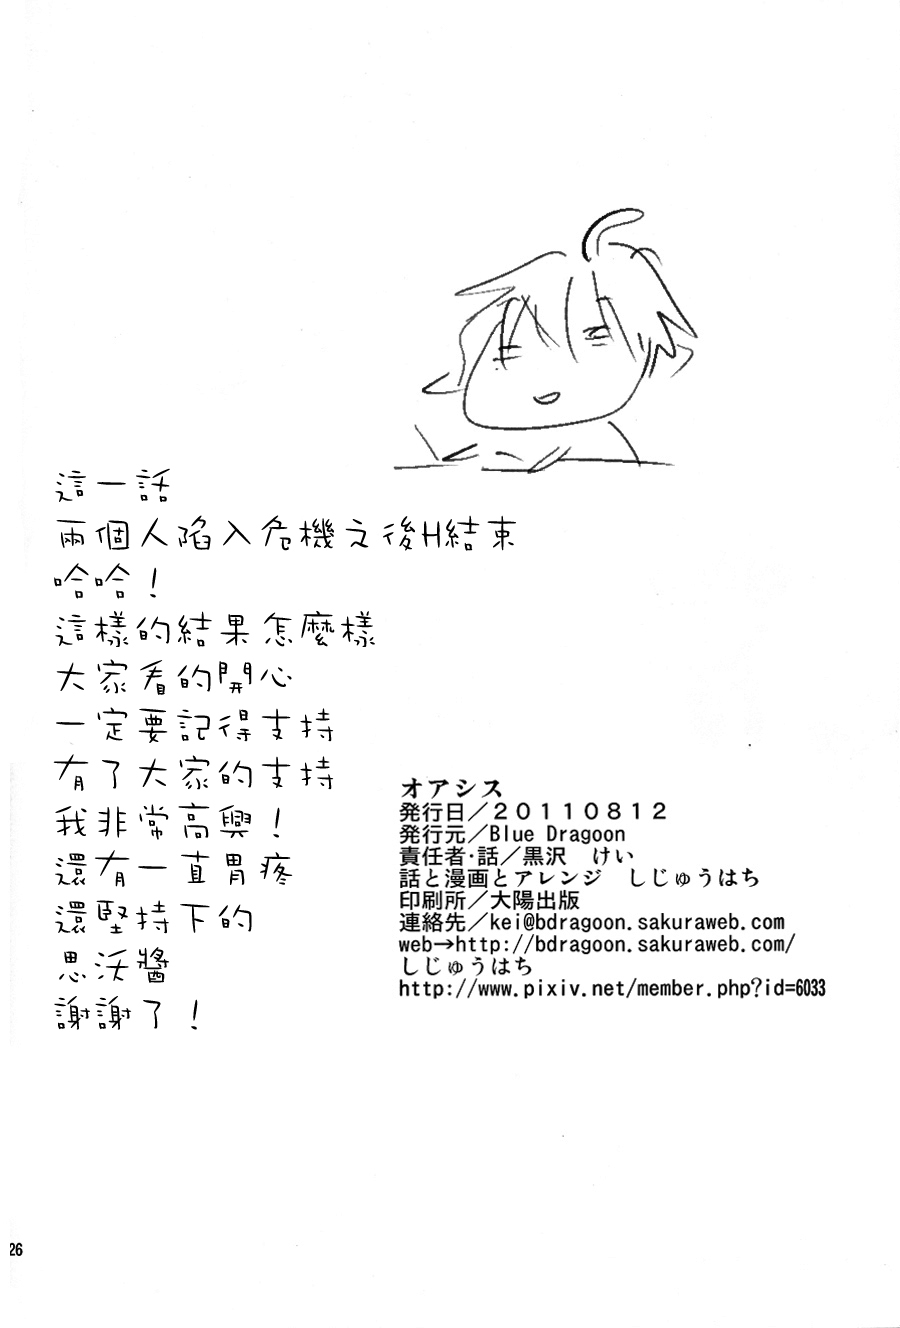 這一話
兩個人陷入危機之後H結束
哈哈！
這樣的結果怎麼樣
大家看的開心
一定要記得支持
有了大家的支持
我非常高興！
還有一直胃疼
還堅持下的
思沃醬
謝謝了！
オアシス
発行日／２０１１０８１２
発行元／Blue Dragoon
責任者・話／黒沢　けい
話と漫画とアレンジ　しじゅうはち
印刷所／大陽出版
連絡先／kei@bdragoon.sakuraweb.com
web→http://bdragoon.sakuraweb.com/
しじゅうはち
http://www.pixiv.net/member.php?id=6033
26